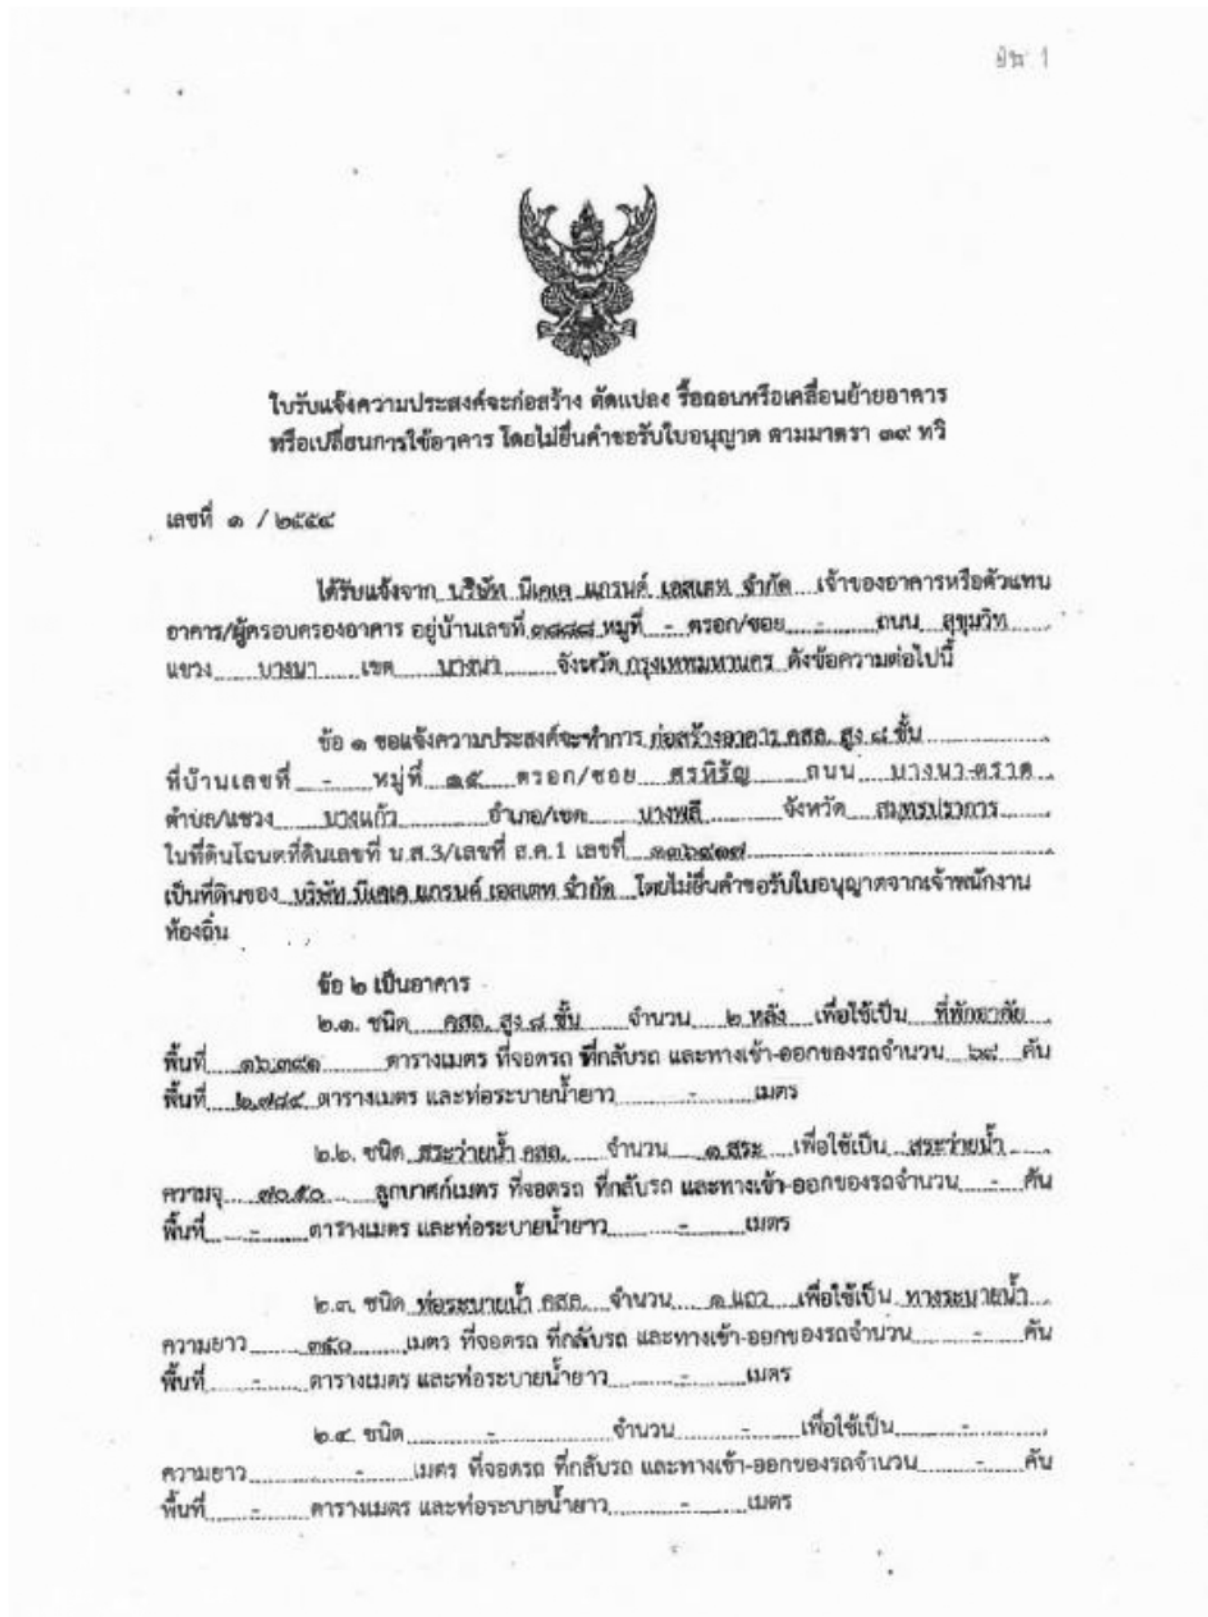 ใบรับแจ้งความประสงค์จะก่อสร้าง ดัดแปลง รื้อถอนหรือเคลื่อนย้ายอาคาร
หรือเปลี่ยนการใช้อาคาร โดยไม่ยื่นคำขอรับใบอนุญาต ตามมาตรา ๓๙ ทวิ
เลขที่ ๑ / ๒๕๕๔
ได้รับแจ้งจาก บริษัท บีเคเค แกรนด์ เอสเตท จำกัด เจ้าของอาคารหรือตัวแทน
อาคาร/ผู้ครอบครองอาคาร อยู่บ้านเลขที่ ๓๘๘๘ หมู่ที่ - ตรอก/ซอย - ถนน สุขุมวิท
แขวง บางนา เขต บางนา จังหวัด กรุงเทพมหานคร ดังข้อความต่อไปนี้
ข้อ ๑ ขอแจ้งความประสงค์จะทำการ ก่อสร้างอาคาร คสล. สูง ๘ ชั้น
ที่บ้านเลขที่ - หมู่ที่ ๑๕ ตรอก/ซอย ศรหิรัญ ถนน บางนา-ตราด
ตำบล/แขวง บางแก้ว อำเภอ/เขต บางพลี จังหวัด สมุทรปราการ
ในที่ดินโฉนดที่ดินเลขที่ น.ส.3/เลขที่ ส.ค.1 เลขที่
เป็นที่ดินของ บริษัท บีเคเค แกรนด์ เอสเตท จำกัด โดยไม่ยื่นคำขอรับใบอนุญาตจากเจ้าพนักงาน
ท้องถิ่น
ข้อ ๒ เป็นอาคาร
๒.๑. ชนิด คสล. สูง ๘ ชั้น จำนวน ๒ หลัง เพื่อใช้เป็น ที่พักอาศัย
พื้นที่ ๑๖,๓๙๑ ตารางเมตร ที่จอดรถ ที่กลับรถ และทางเข้า-ออกของรถจำนวน ๖๙ คัน
พื้นที่ ๒,๗๘๔ ตารางเมตร และท่อระบายน้ำยาว - เมตร
๒.๒. ชนิด สระว่ายน้ำ คสล. จำนวน ๑ สระ เพื่อใช้เป็น สระว่ายน้ำ
ความจุ ๗๐.๕๐ ลูกบาศก์เมตร ที่จอดรถ ที่กลับรถ และทางเข้า-ออกของรถจำนวน - คัน
พื้นที่ - ตารางเมตร และท่อระบายน้ำยาว - เมตร
๒.๓. ชนิด ท่อระบายน้ำ คสล. จำนวน ๑ แถว เพื่อใช้เป็น ทางระบายน้ำ
ความยาว ๓๕๐ เมตร ที่จอดรถ ที่กลับรถ และทางเข้า-ออกของรถจำนวน - คัน
พื้นที่ - ตารางเมตร และท่อระบายน้ำยาว - เมตร
๒.๔. ชนิด - จำนวน - เพื่อใช้เป็น -
ความยาว - เมตร ที่จอดรถ ที่กลับรถ และทางเข้า-ออกของรถจำนวน - คัน
พื้นที่ - ตารางเมตร และท่อระบายน้ำยาว - เมตร